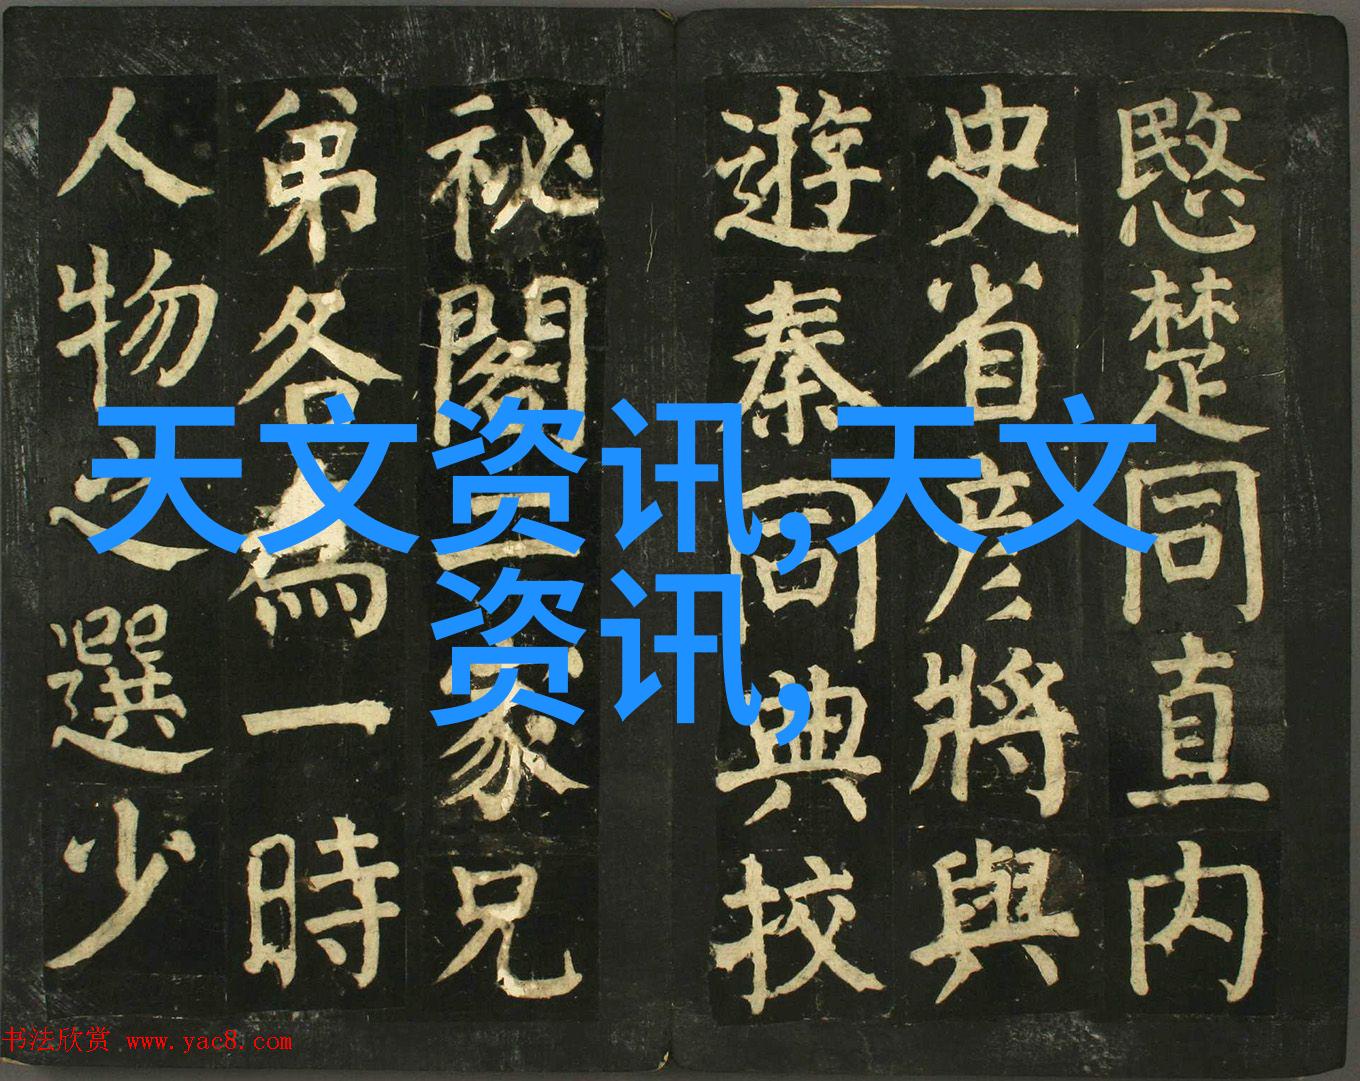 愍楚同直内
史省彦將與
遊秦同典校
祕閣二家兄
弟各為一時
人物之選少
天文资讯,天文
资讯,
书法欣赏 www.yac8.com